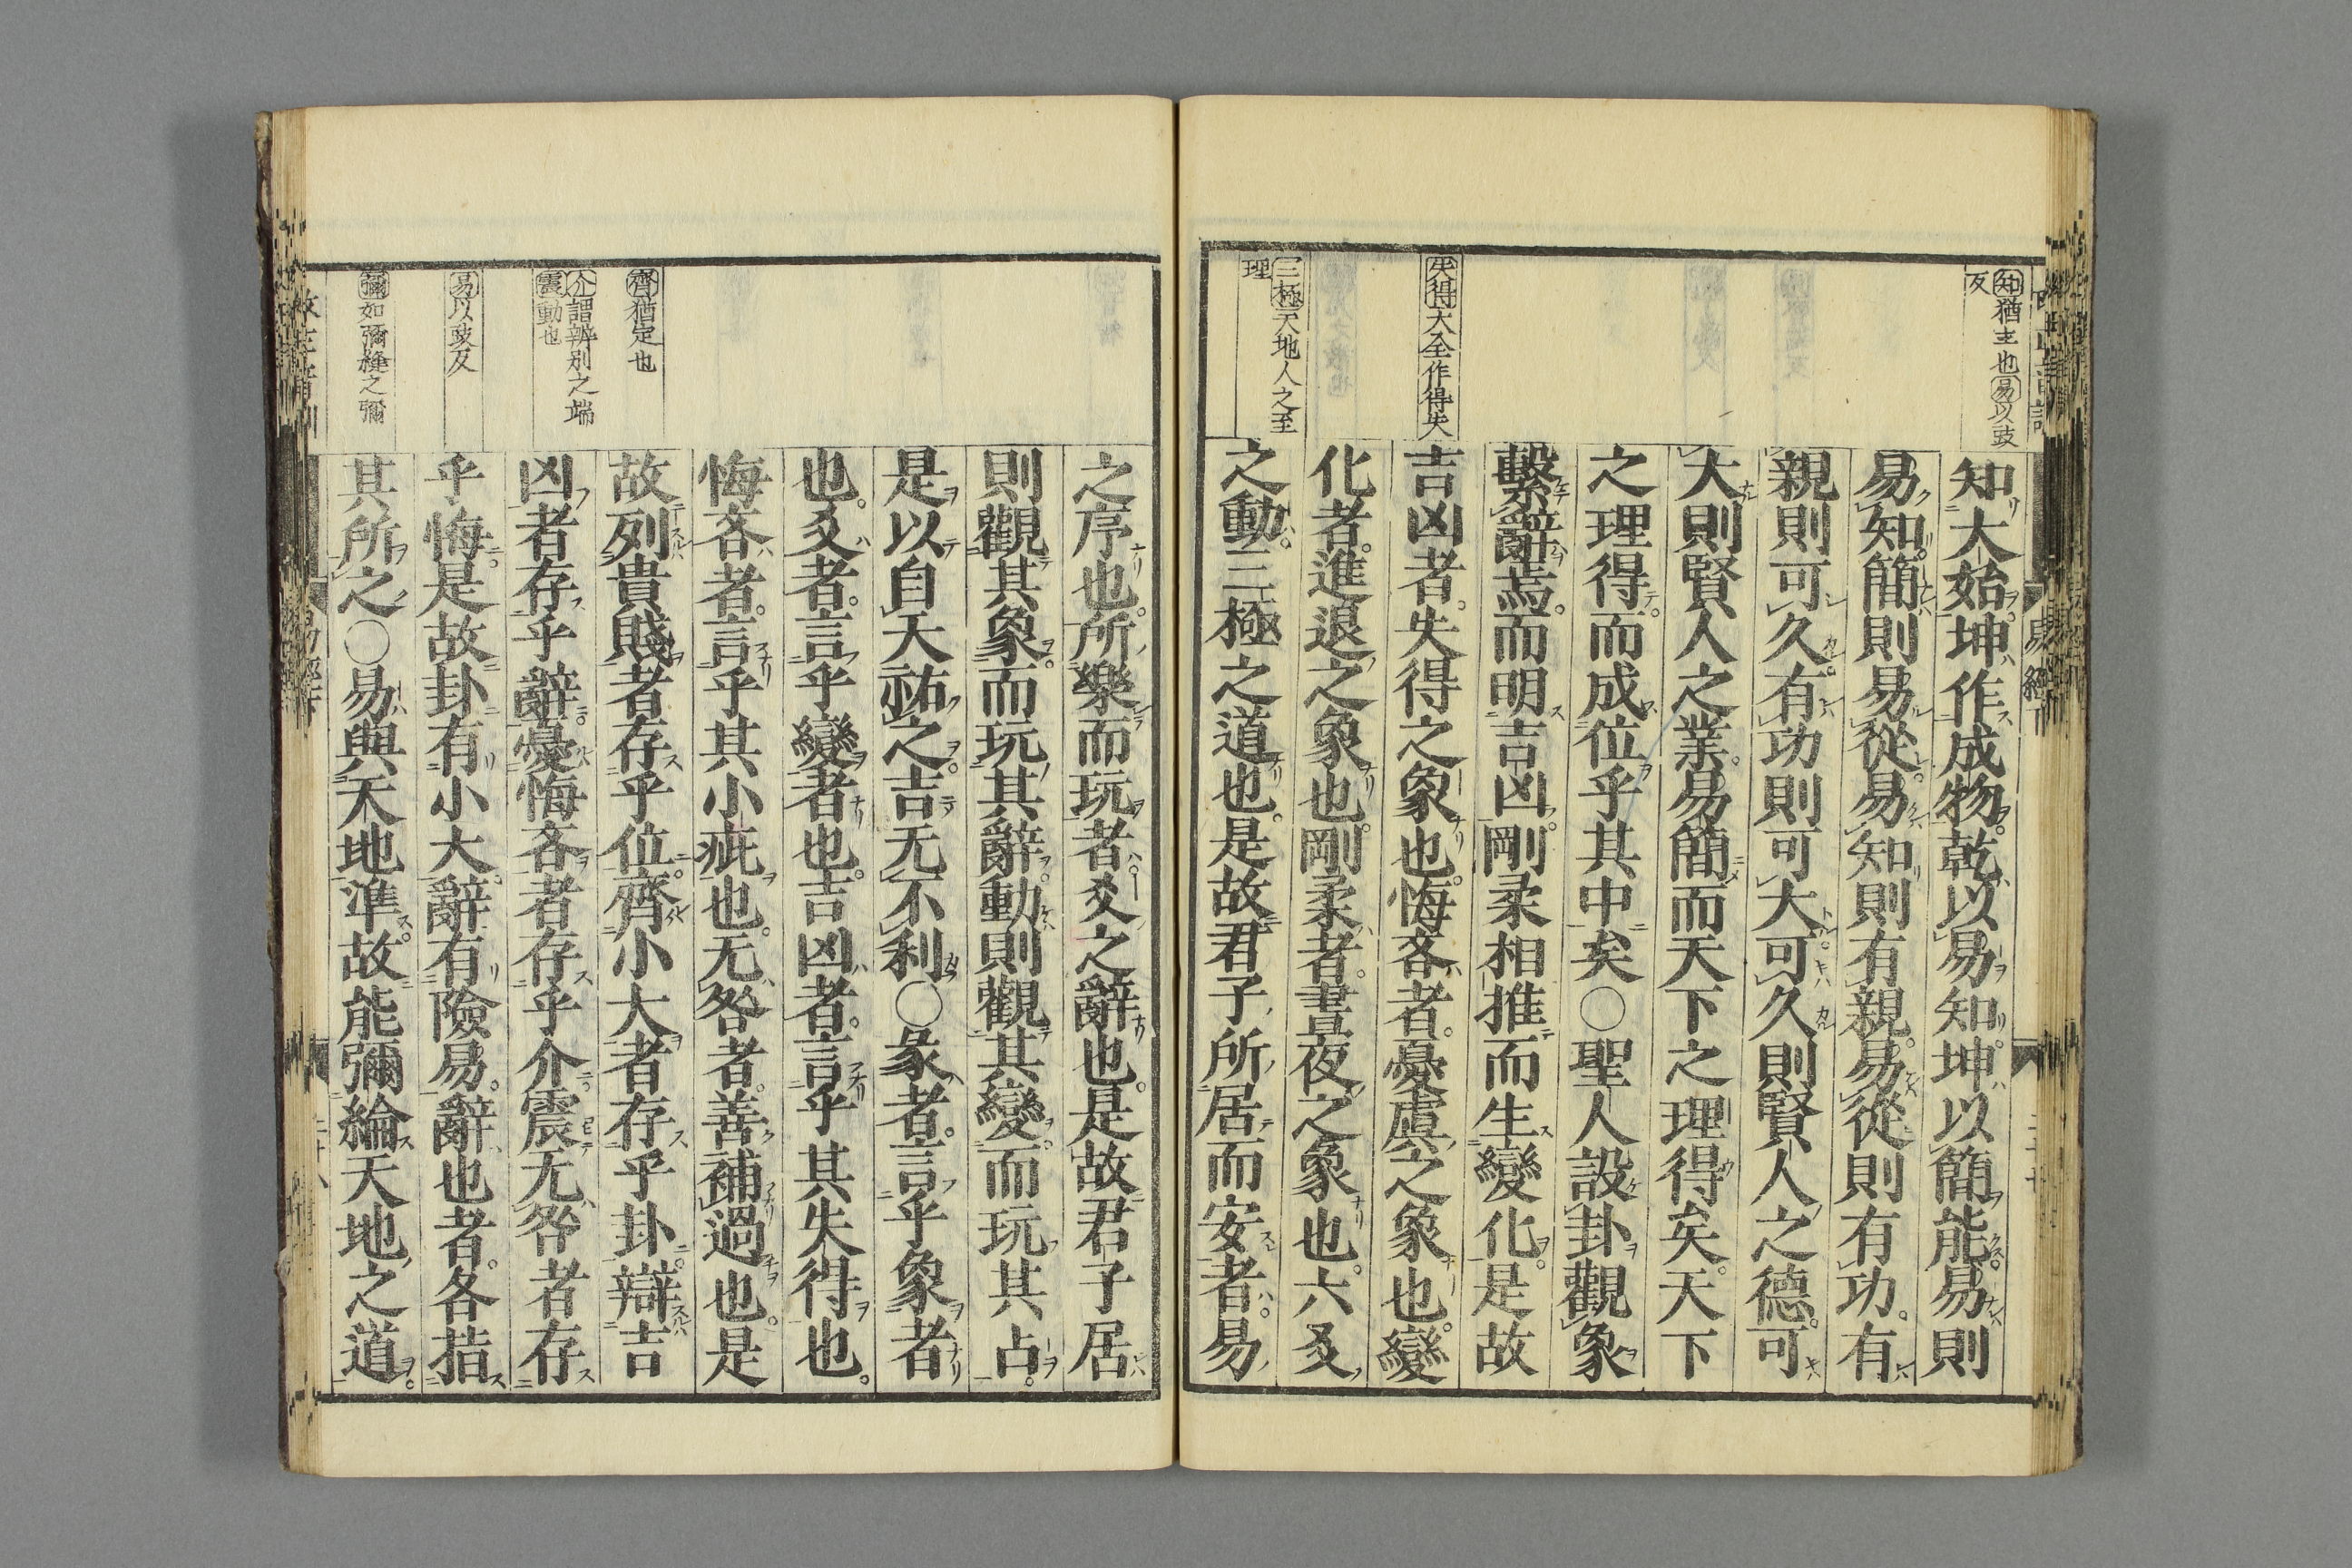 知猶主也易以豉
反
失得大全作得失
三極天地人之至
理
知大始坤作成物乾以易知坤以簡能易則
易知簡則易從易知則有親易從則有功有
親則可久有功則可大可久則賢人之德可
大則賢人之業易簡而天下之理得矣天下
之理得而成位乎其中矣○聖人設卦觀象
繫辭焉而明吉凶剛柔相推而生變化是故
吉凶者失得之象也悔吝者憂虞之象也變
化者進退之象也剛柔者晝夜之象也六爻
之動三極之道也是故君子所居而安者易
齊猶定也
介謂辨別之端
震動也
易以豉反
彌如彌縫之彌
之序也所樂而玩者爻之辭也是故君子居
則觀其象而玩其辭動則觀其變而玩其占
是以自天祐之吉无不利○彖者言乎象者
也爻者言乎變者也吉凶者言乎其失得也
悔吝者言乎其小疵也无咎者善補過也是
故列貴賤者存乎位齊小大者存乎卦辯吉
凶者存乎辭憂悔吝者存乎介震无咎者存
乎悔是故卦有小大辭有險易辭也者各指
其所之○易與天地準故能彌綸天地之道